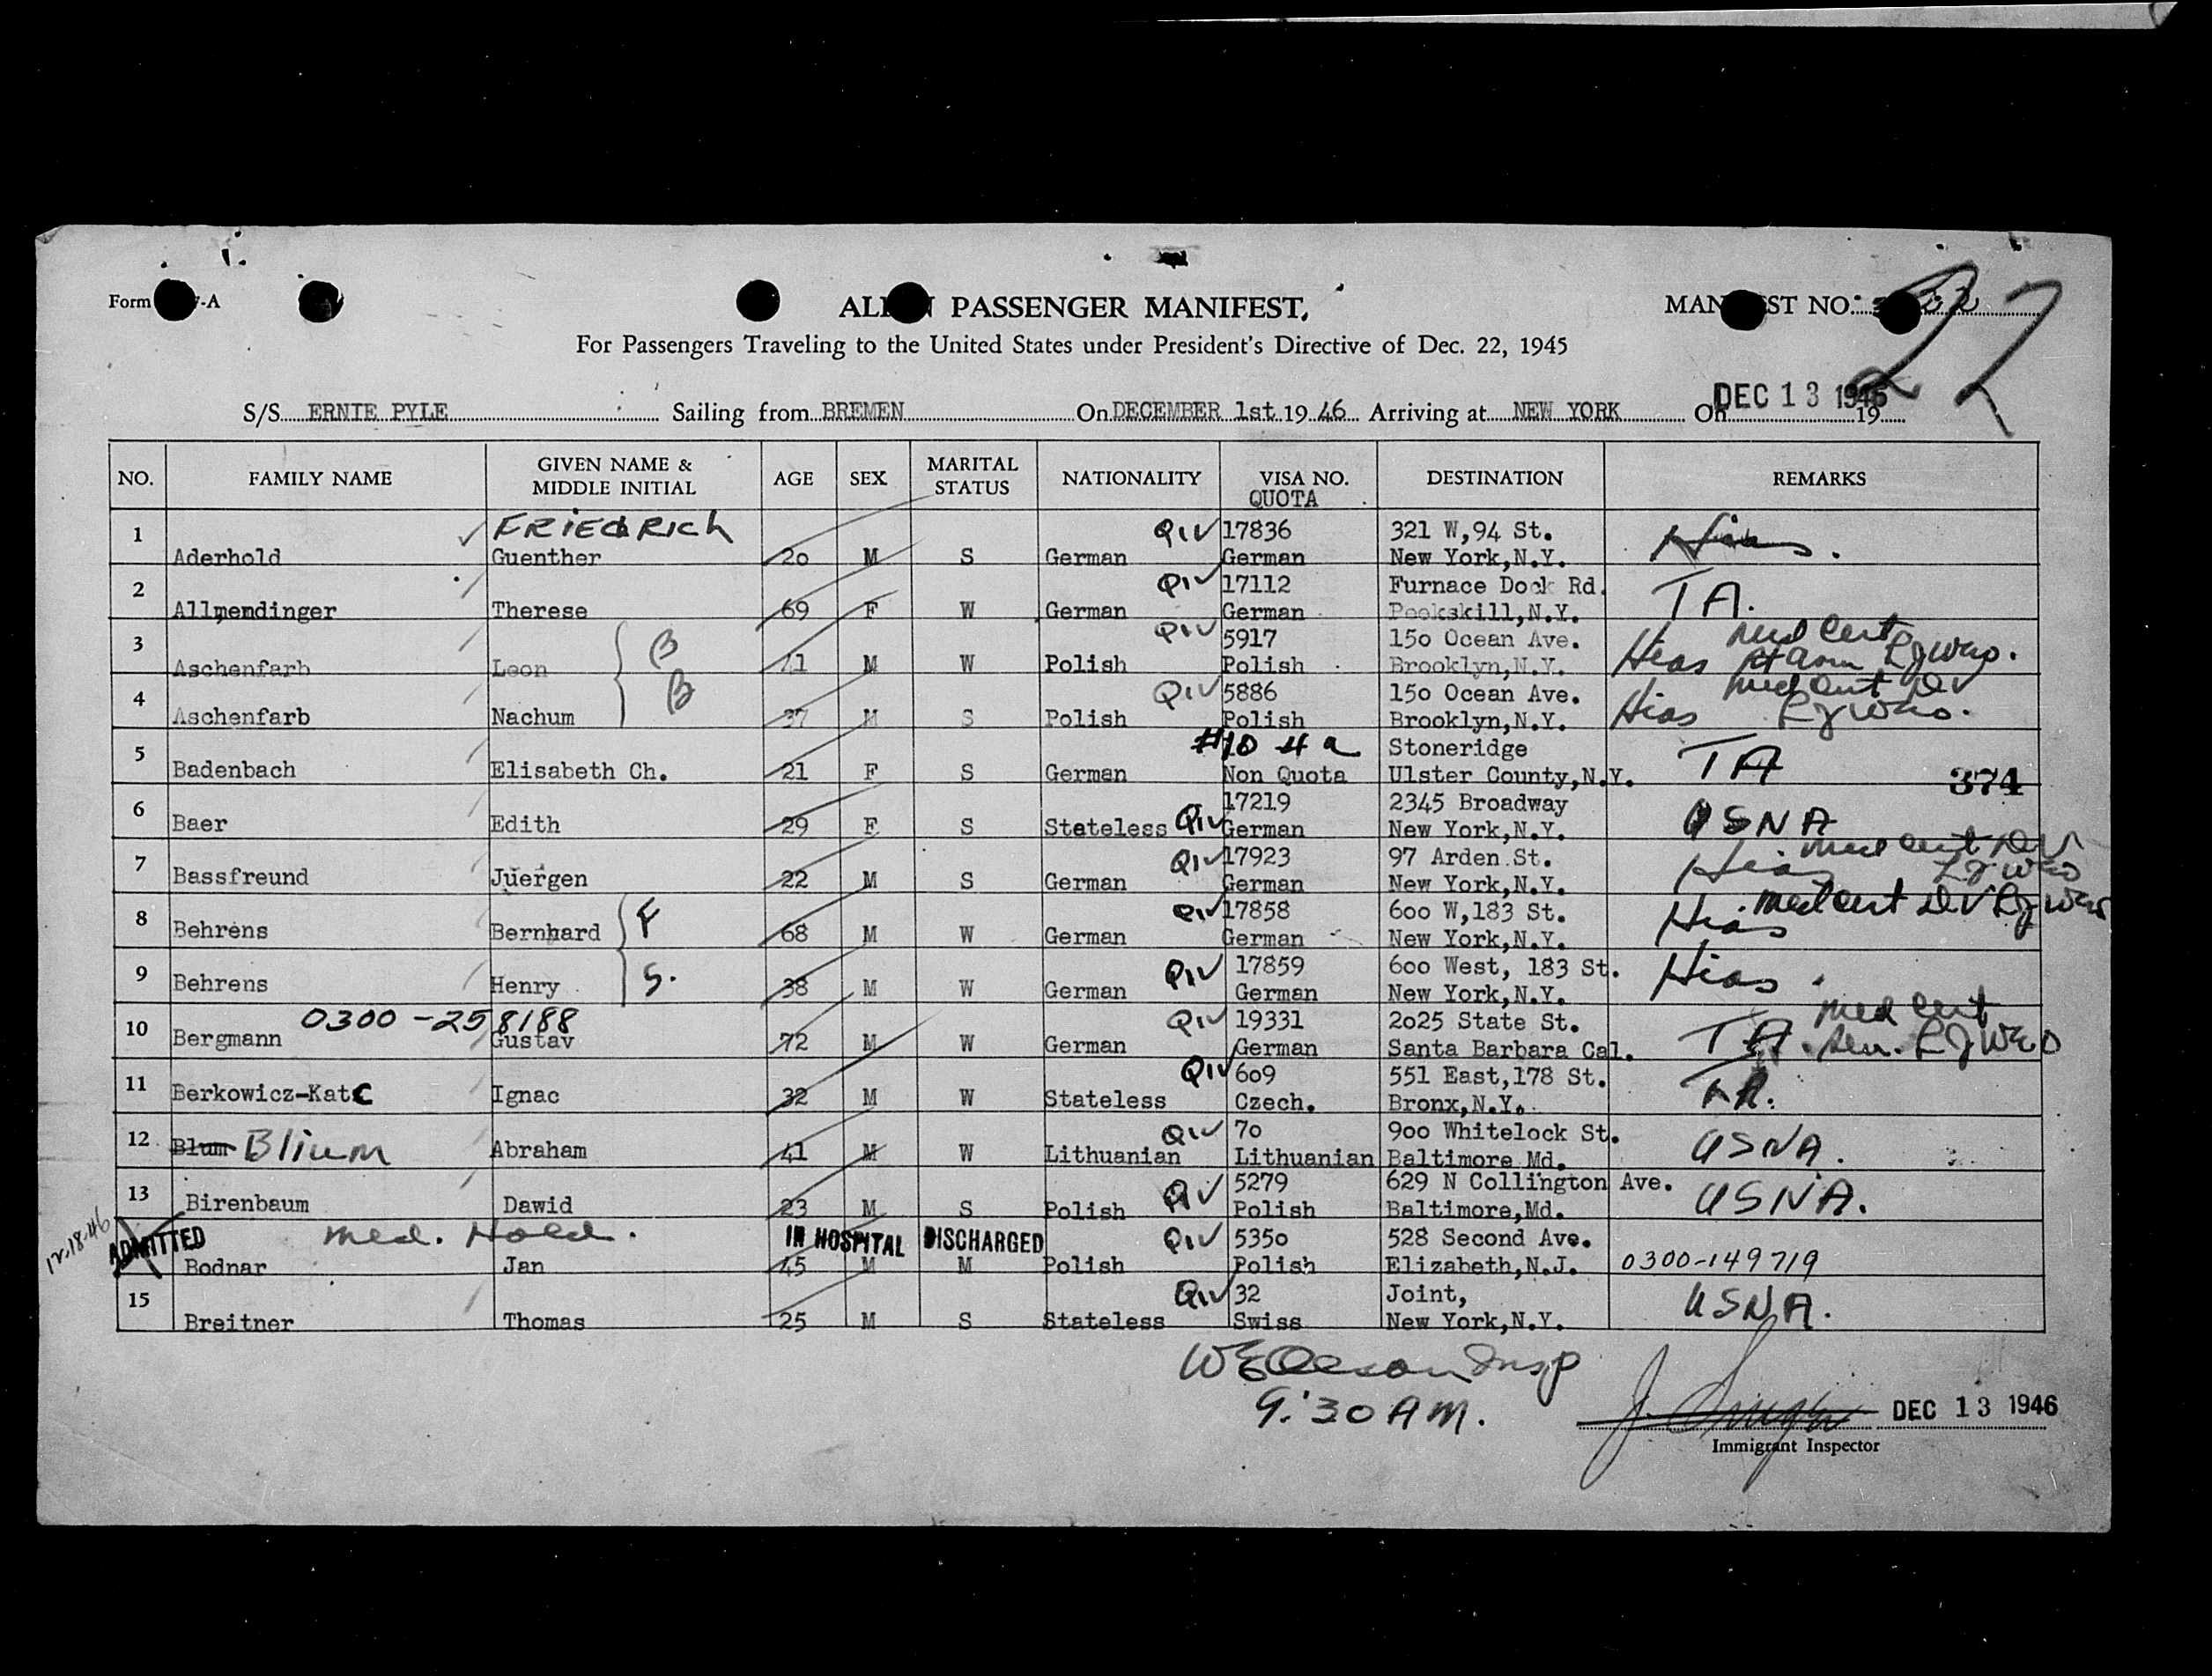 Form -A
ALIEN PASSENGER MANIFEST.
MANIFEST NO.
27
For Passengers Traveling to the United States under President's Directive of Dec. 22, 1945
S/S ERNIE PYLE Sailing from BREMEN On DECEMBER 1st 19 46 Arriving at NEW YORK On DEC 13 1946 19
NO. FAMILY NAME GIVEN NAME & MIDDLE INITIAL AGE SEX MARITAL STATUS NATIONALITY VISA NO. QUOTA DESTINATION REMARKS
1 FRIEDRICH QIV 17836 321 W,94 St. Hias.
Aderhold Guenther 20 M S German German New York,N.Y.
2 QIV 17112 Furnace Dock Rd. TA.
Allmendinger Therese 69 F W German German Peekskill,N.Y.
3 B QIV 5917 150 Ocean Ave. Med Cert
Aschenfarb Leon 41 M W Polish Polish Brooklyn,N.Y. Hias
4 B QIV 5886 150 Ocean Ave. Med Cert DV
Aschenfarb Nachum 37 M S Polish Polish Brooklyn,N.Y. Hias
5 #10 4a Stoneridge TA
Badenbach Elisabeth Ch. 21 F S German Non Quota Ulster County,N.Y. 374
6 17219 2345 Broadway USNA
Baer Edith 29 F S Stateless QIV German New York,N.Y.
7 QIV 17923 97 Arden St. Hias Med Cert DV
Bassfreund Juergen 22 M S German German New York,N.Y.
8 F QIV 17858 600 W,183 St. Med Cert DV
Behrens Bernhard 68 M W German German New York,N.Y. Hias
9 S. QIV 17859 600 West, 183 St. Hias.
Behrens Henry 38 M W German German New York,N.Y.
10 0300-258188 QIV 19331 2025 State St. Med Cert
Bergmann Gustav 72 M W German German Santa Barbara Cal. TA. Sen.
11 QIV 609 551 East,178 St. TA.
Berkowicz-Katc Ignac 32 M W Stateless Czech. Bronx,N.Y.
12 QIV 70 900 Whitelock St. USNA.
Blum Blium Abraham 41 M W Lithuanian Lithuanian Baltimore Md.
13 QIV 5279 629 N Collington Ave. USNA.
Birenbaum Dawid 23 M S Polish Polish Baltimore,Md.
12-18-46 ADMITTED Med. Hold. IN HOSPITAL DISCHARGED QIV 5350 528 Second Ave.
Bodnar Jan 45 M M Polish Polish Elizabeth,N.J. 0300-149719
15 QIV 32 Joint, USNA.
Breitner Thomas 25 M S Stateless Swiss New York,N.Y.
Insp
9:30 AM.
DEC 13 1946
Immigrant Inspector